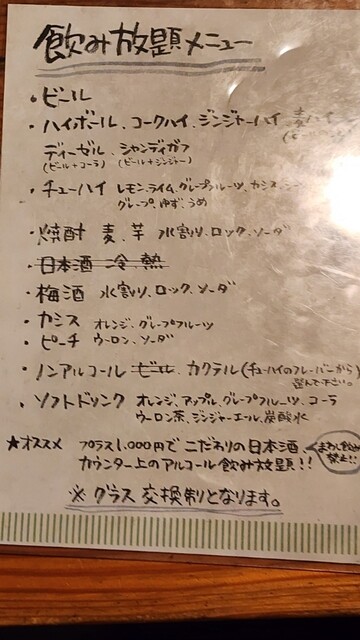 飲み放題メニュー
・ビール
・ハイボール、コークハイ、ジンジャーハイ 麦ハイ
ディーゼル、シャンディガフ
(ビール+コーラ) (ビール+ジンジャー)
・チューハイ レモン、ライム、グレープフルーツ、カシス、
グレープ、ゆず、うめ
・焼酎 麦、芋 水割り、ロック、ソーダ
・日本酒 冷、熱
・梅酒 水割り、ロック、ソーダ
・カシス オレンジ、グレープフルーツ
・ピーチ ウーロン、ソーダ
・ノンアルコール ビール カクテル(チューハイのフレーバーから
選んで下さい。
・ソフトドリンク オレンジ、アップル、グレープフルーツ、コーラ
ウーロン茶、ジンジャーエール、炭酸水
★オススメ プラス1,000円でこだわりの日本酒、
カウンター上のアルコール飲み放題!!
まわし飲み
禁止!!
※グラス交換制となります。